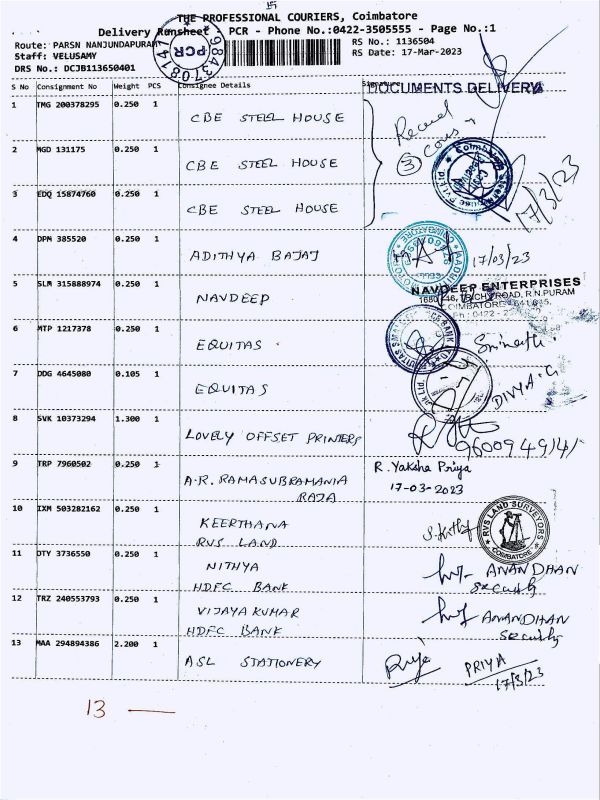 THE PROFESSIONAL COURIERS, Coimbatore
Delivery Runsheet - PCR - Phone No.:0422-3505555 - Page No.:1
Route: PARSN NANJUNDAPURAM
RS No.: 1136504
Staff: VELUSAMY
RS Date: 17-Mar-2023
DRS No.: DCJB113650401
PCR
9843708147
S No Consignment No Weight PCS Consignee Details Signature
DOCUMENTS DELIVERY
1 TMG 200378295 0.250 1 CBE STEEL HOUSE
2 MGD 131175 0.250 1 CBE STEEL HOUSE
3 EDQ 15874760 0.250 1 CBE STEEL HOUSE
3
17/3/23
4 DPM 385520 0.250 1 ADITHYA BAJAJ
17/03/23
5 SLM 315888974 0.250 1 NAVDEEP
NAVDEEP ENTERPRISES
6 MTP 1217378 0.250 1 EQUITAS
Srinath
7 DDG 4645080 0.105 1 EQUITAS
DIVYA.G
8 SVK 10373294 1.300 1 LOVELY OFFSET PRINTERS
9 TRP 7960502 0.250 1 A.R. RAMASUBRAMANIA
RAJA
R. Yaksha Priya
17-03-2023
10 IXM 503282162 0.250 1 KEERTHANA
RVS LAND
RVS LAND SURVEYORS
COIMBATORE
11 OTY 3736550 0.250 1 NITHYA
HDFC BANK
ANANDHAN
Security
12 TRZ 240553793 0.250 1 VIJAYA KUMAR
HDFC BANK
ANANDHAN
Security
13 MAA 294894386 2.200 1 ASL STATIONERY
Priya PRIYA
17/3/23
13 —